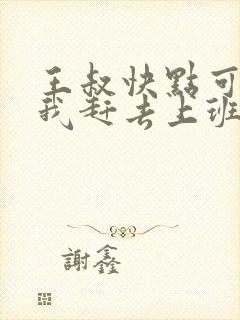 王叔快點可
我赶去上班
謝鑫